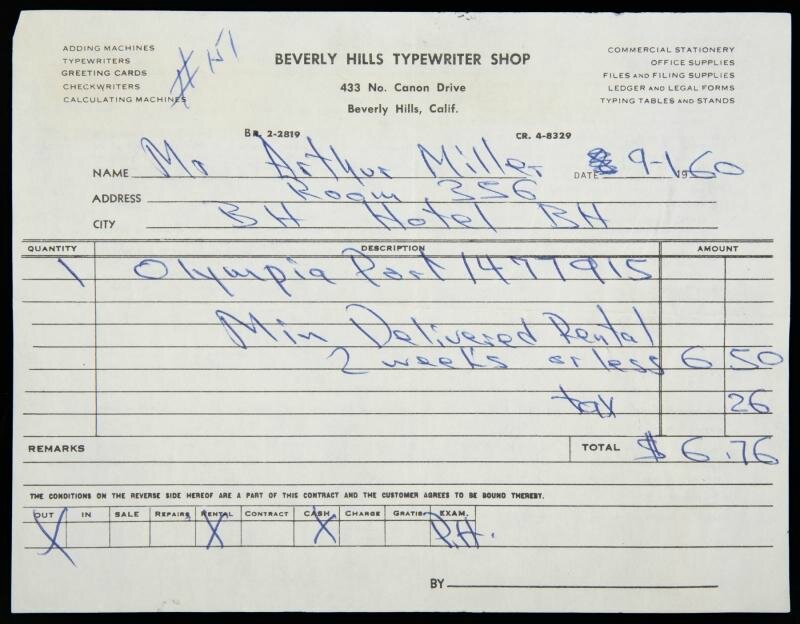 ADDING MACHINES
TYPEWRITERS
GREETING CARDS
CHECKWRITERS
CALCULATING MACHINES
#151
BEVERLY HILLS TYPEWRITER SHOP
433 No. Canon Drive
Beverly Hills, Calif.
COMMERCIAL STATIONERY
OFFICE SUPPLIES
FILES AND FILING SUPPLIES
LEDGER AND LEGAL FORMS
TYPING TABLES AND STANDS
BR. 2-2819 CR. 4-8329
NAME Mr Arthur Miller DATE 9-1 1960
ADDRESS Room 356
CITY BH Hotel BH
QUANTITY DESCRIPTION AMOUNT
1 Olympia Port 1477915
Min Delivered Rental
2 weeks or less 6 50
tax 26
REMARKS TOTAL $ 6.76
THE CONDITIONS ON THE REVERSE SIDE HEREOF ARE A PART OF THIS CONTRACT AND THE CUSTOMER AGREES TO BE BOUND THEREBY.
OUT IN SALE REPAIRS RENTAL CONTRACT CASH CHARGE GRATIS EXAM.
X X X P.H.
BY